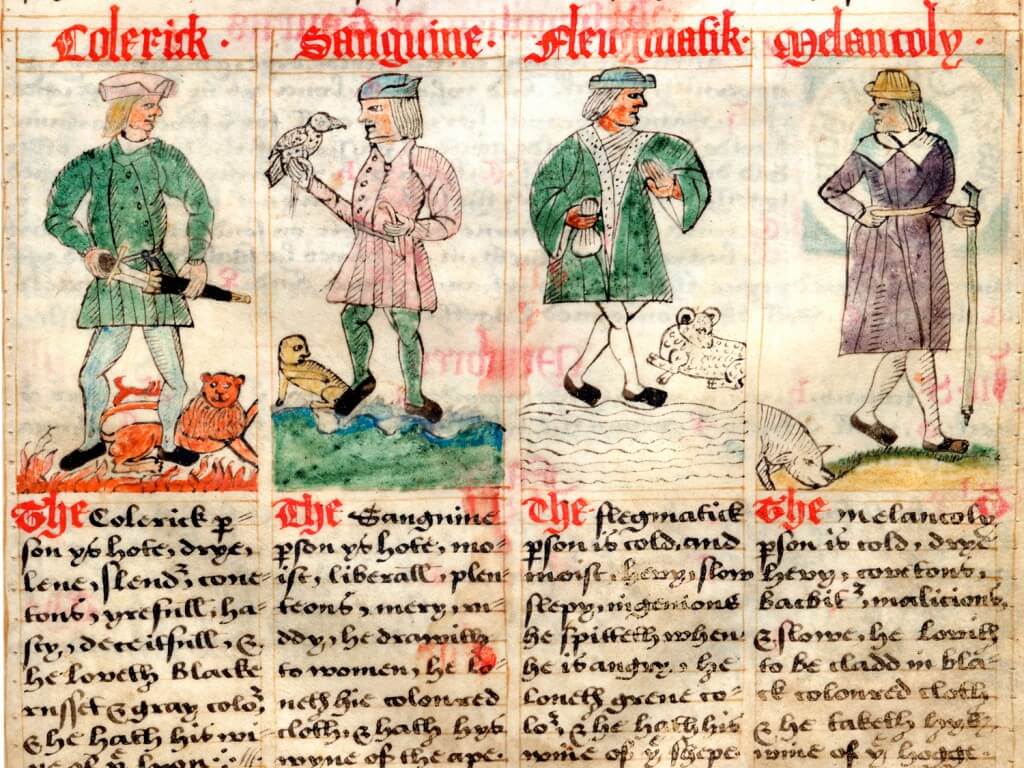 Colerick.
The Colerick ꝑ=
son ys hote, drye,
lene, slendʳ, coue=
tous, yrefull, ha=
sty, deceitfull, &
he loveth Blacke
russet & gray coloʳ
& he hath his wi=
ne of yᵉ lyon.
Sanguine.
The Sanguine
ꝑson ys hote, mo=
ist, liberall, plen=
teous, mery, ru=
ddy, he drawith
to women, he lo=
ueth hie coloured
cloth, & hath hys
wyne of the ape.
Fleugmatik.
The flegmatick
ꝑson is cold, and
moist, hevy, slow
slepy, ingenious
he spitteth when
he is angry, he
loueth grene co=
loʳ, & he hath his
wine of yᵉ shepe.
Melancoly.
The melancoly
ꝑson is cold, drye
hevy, covetous,
bacbitʳ, malicious,
& slowe, he lovith
to be cladd in bla=
ck coloured cloth
& he taketh hys
wine of yᵉ hogge.